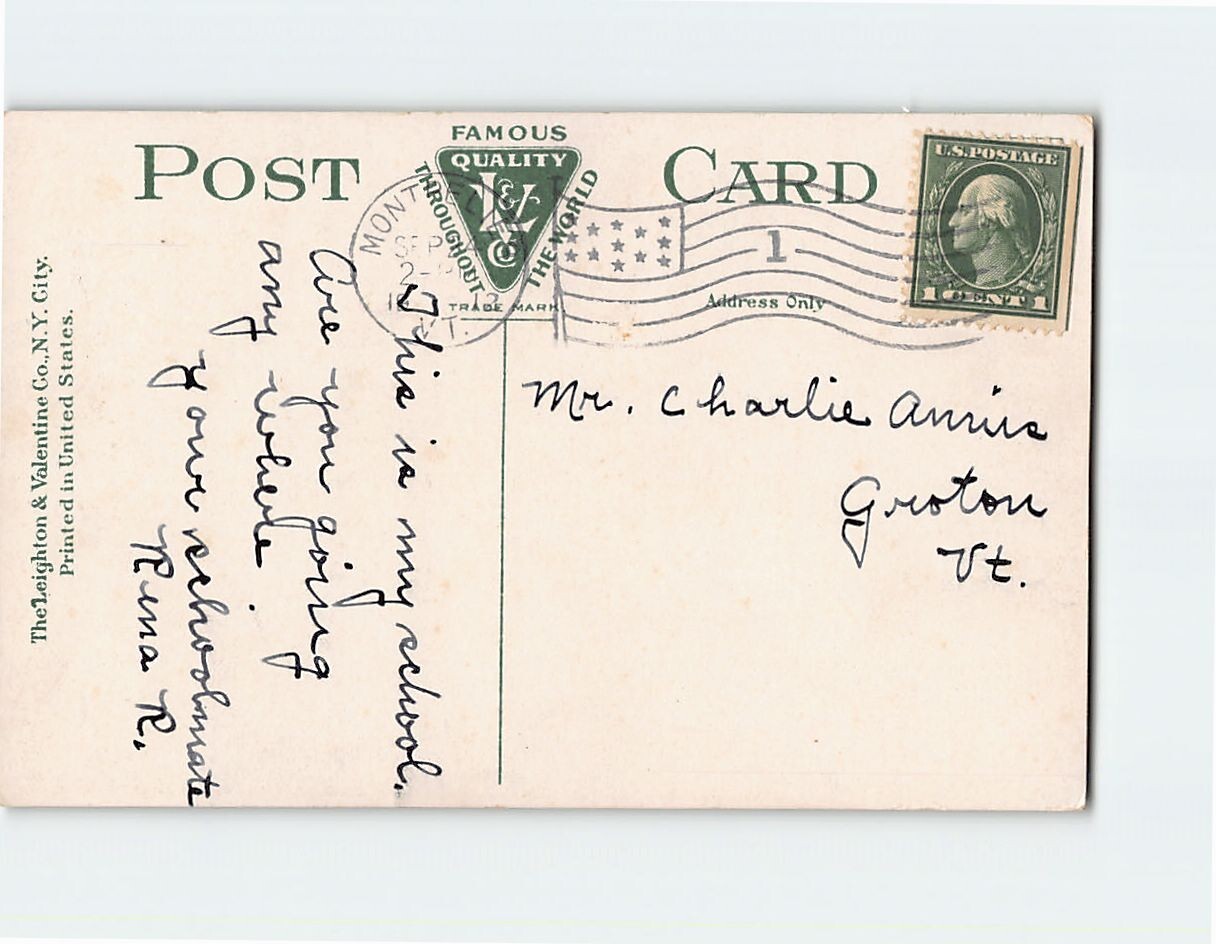 POST CARD
FAMOUS
QUALITY
L & V Co
THROUGHOUT
THE WORLD
TRADE MARK
MONTPELIER
SEP
VT.
1
Address Only
U.S. POSTAGE
1 CENT 1
The Leighton & Valentine Co., N.Y. City.
Printed in United States.
This is my school.
Are you going
any where
your schoolmate
Rena R.
Mr. Charlie Annis
Groton
Vt.